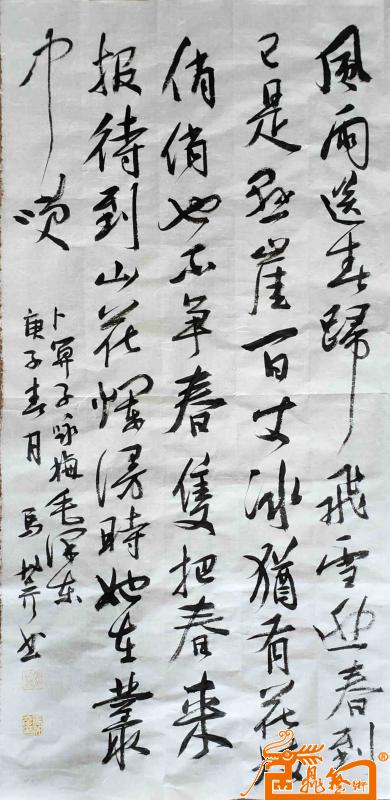 風雨送春歸飛雪迎春到
已是悬崖百丈冰猶有花枝
俏俏也不争春隻把春来
报待到山花爛漫時她在叢
中咲
卜算子咏梅毛泽东
庚子春月 馬书